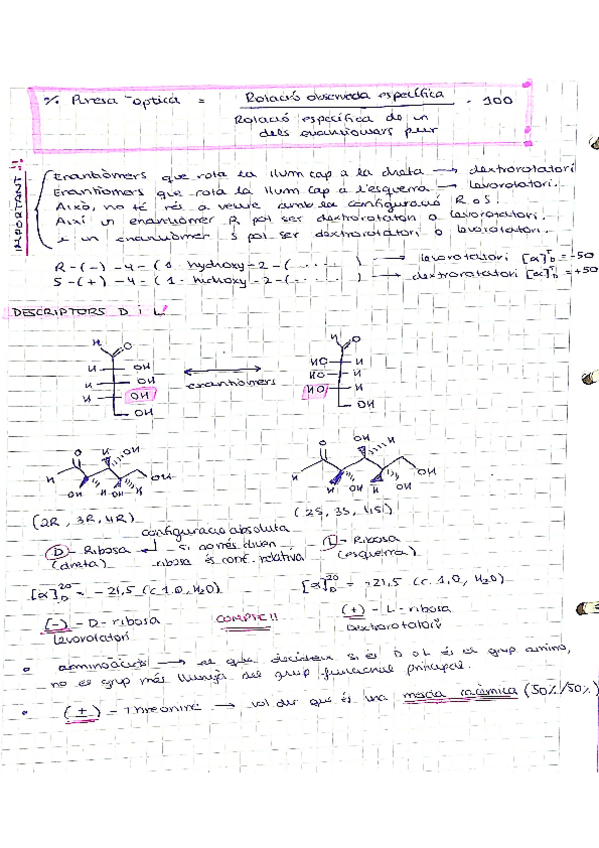 % Puresa òptica = Rotació observada específica . 100
Rotació específica de un
dels enantiomars pur
IMPORTANT!!
Enantiòmers que rota la llum cap a la dreta → dextrorotatori
Enantiomers que rota la llum cap a l'esquerra → Levorotatori.
Això, no té rés a veure amb la configuració R o S.
Així un enantiomer R pot ser dextrorotatori o levorotatori.
e un enantiomer S pot ser dextrorotatori o levorotatori.
R-(-)-4-(1-hydroxy-2-(......) → levorotatori [α]ᵀD = -50
S-(+)-4-(1-hidroxy-2-(.....) → dextrorotatori [α]ᵀD = +50
DESCRIPTORS D i L:
H O H O
H OH HO H
H OH enantiòmers HO H
H OH HO H
OH OH
O H OH O OH H
H OH H OH H OH H OH H OH H OH
(2R, 3R, 4R) (2S, 3S, 4S)
configuració absoluta
D - Ribosa si només diuen L - Ribosa
(dreta) ribosa és conf. relativa (esquerra)
[α]²⁰D = -21,5 (c 1.0, H₂O) [α]²⁰D = +21,5 (c. 1,0, H₂O)
(-) - D - ribosa COMPTE!! (+) - L - ribosa
levorotatori Dextrorotatori
• aminoàcids → el que decideix si és D o L és el grup amino,
no el grup més llunyà del grup funcional principal.
• (±) - Threonine → vol dir que és una mescla racèmica (50%/50%)